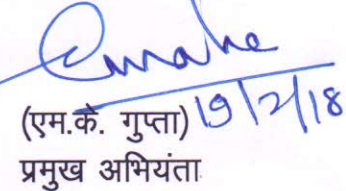 (एम.के. गुप्ता) 19/2/18
प्रमुख अभियंता